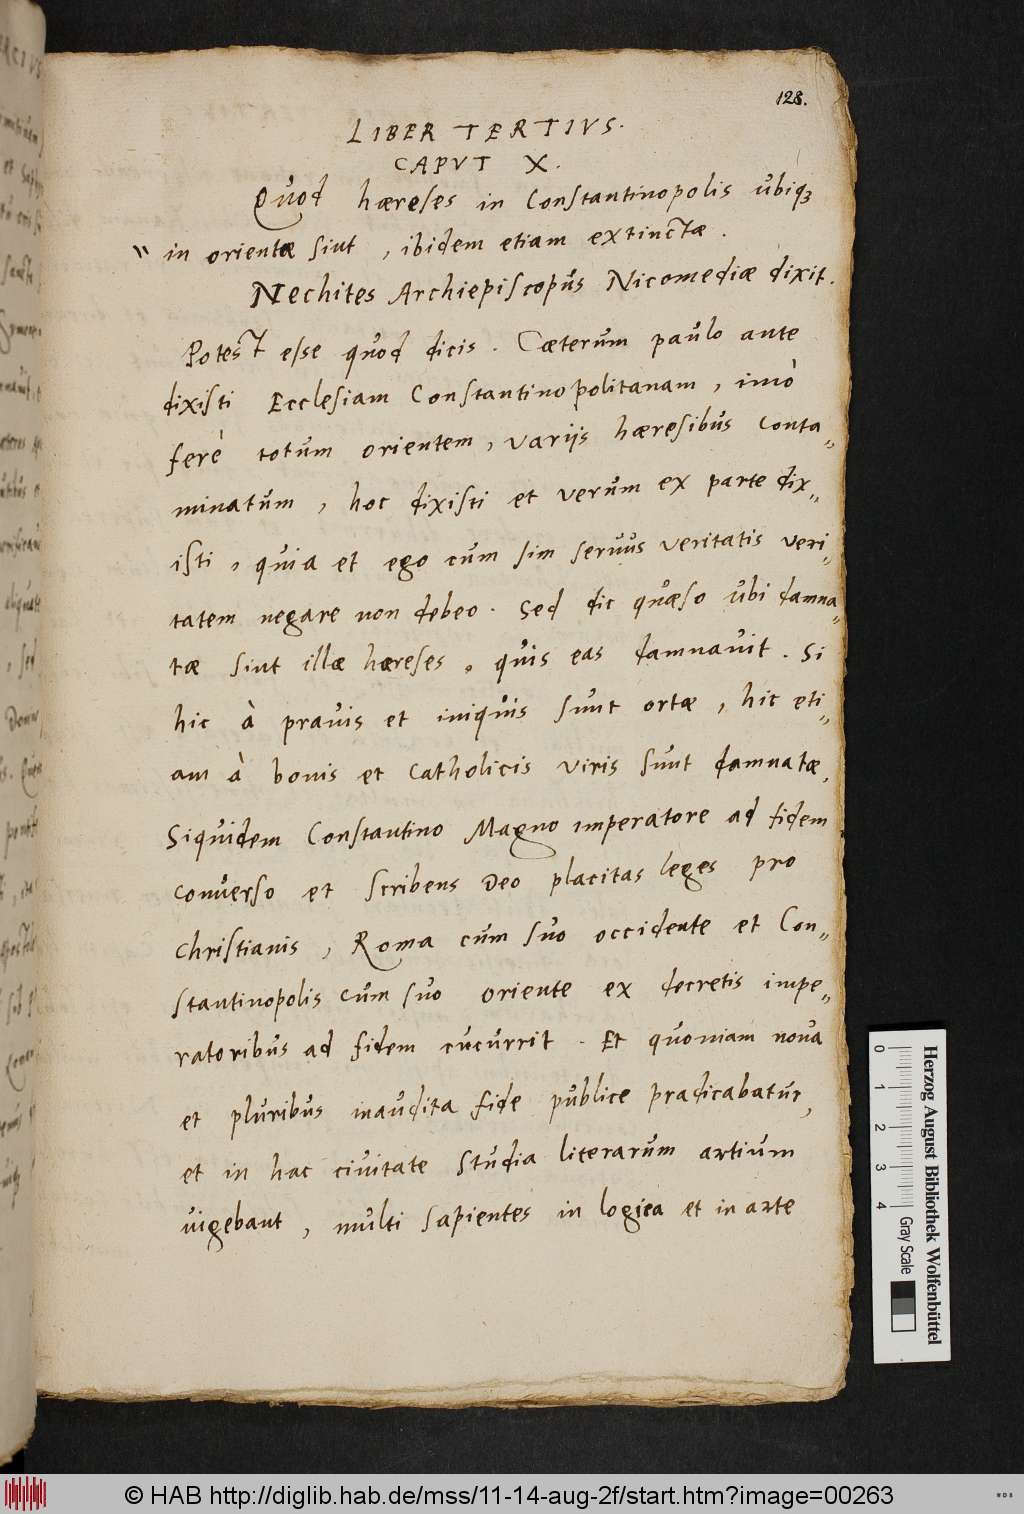 128.
LIBER TERTIVS.
CAPVT X.
Quod hæreses in Constantinopolis ubiqꝫ
" in orientæ sint, ibidem etiam extinctæ.
Nechites Archiepiscopus Nicomediæ dixit.
Potest esse quod dicis. Cæterum paulo ante
dixisti Ecclesiam Constantinopolitanam, imò
ferè totum orientem, varijs hæresibus conta„
minatum, hoc dixisti et verum ex parte dix„
isti, quia et ego cum sim seruus veritatis veri„
tatem negare non debeo. Sed dic quæso ubi damna„
tæ sint illæ hæreses, quis eas damnauit. Si
hic à prauis et iniquis sunt ortæ, hic eti„
am à bonis et catholicis viris sunt damnatæ,
Siquidem Constantino Magno imperatore ad fidem
conuerso et scribens Deo placitas leges pro
christianis, Roma cum suo occidente et Con„
stantinopolis cum suo oriente ex decretis impe„
ratoribus ad fidem cucurrit. Et quoniam noua
et pluribus inaudita fide publice pradicabatur,
et in hac ciuitate studia literarum artium
uigebant, multi sapientes in logica et in arte
Herzog August Bibliothek Wolfenbüttel
0 1 2 3 4 Gray Scale
© HAB http://diglib.hab.de/mss/11-14-aug-2f/start.htm?image=00263